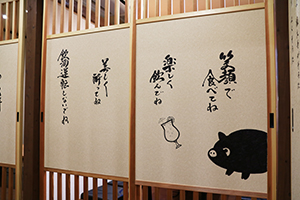 笑顔で
食べてね
楽しく
飲んでね
美しく
酔ってね
飲酒運転しないでね